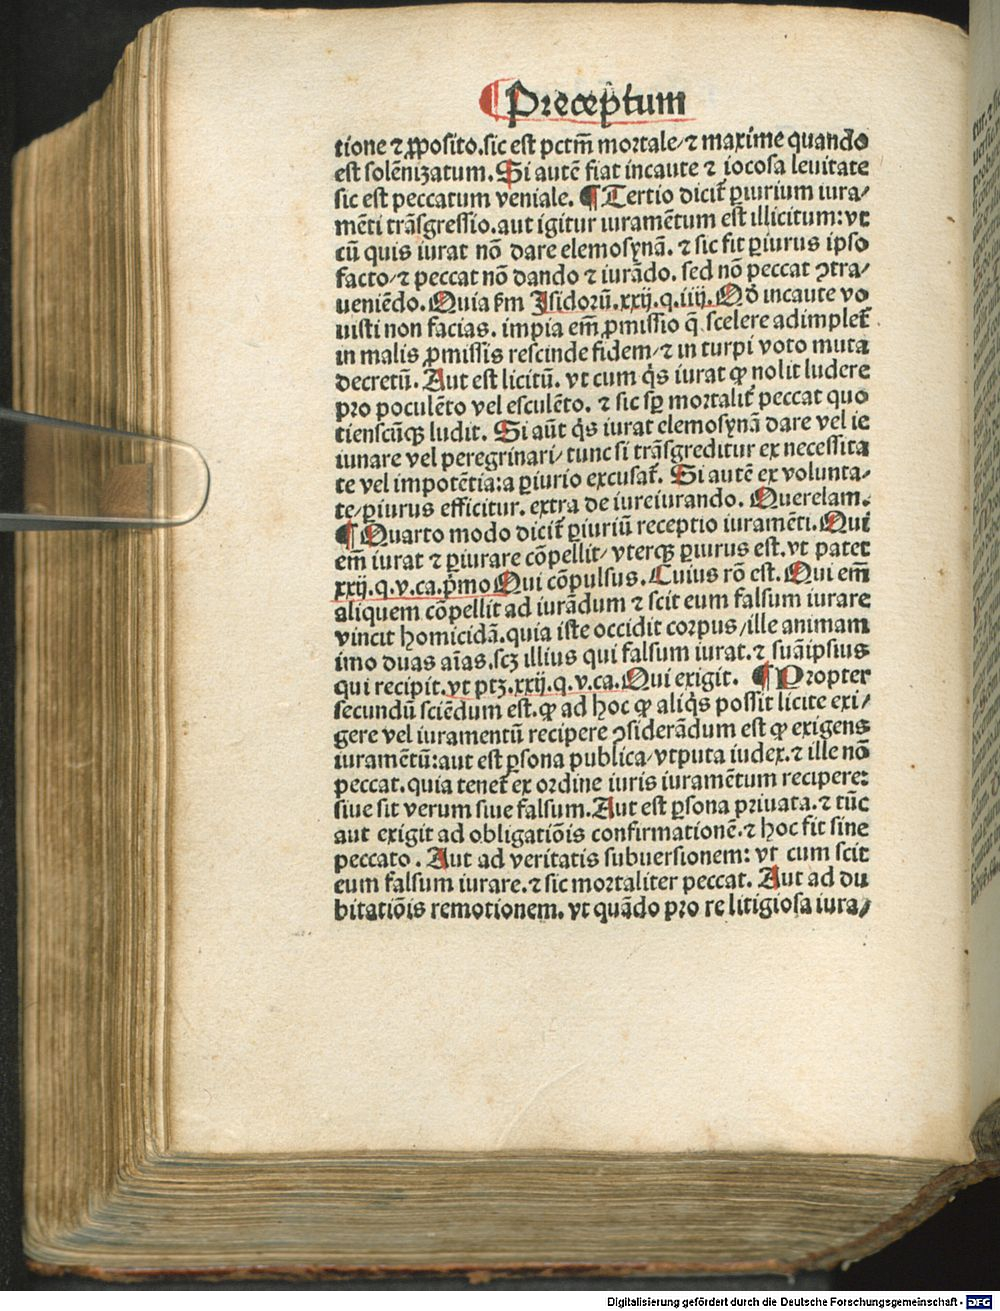 ¶ Preceptum
tione ⁊ ꝓposito. sic est pctm̄ mortale/ ⁊ maxime quando
est solēnizatum. Si autē fiat incaute ⁊ iocosa leuitate
sic est peccatum veniale. ¶ Tertio dicit̄ ꝑiurium iura/
mēti trāsgressio. aut igitur iuramētum est illicitum: vt
cū quis iurat nō dare elemosynā. ⁊ sic fit ꝑiurus ipso
facto/ ⁊ peccat nō dando ⁊ iurādo. sed nō peccat ↄtra/
ueniēdo. Quia ẜm Isidorū. xxij. q. iiij. Qd̄ incaute vo
uisti non facias. impia em̄ ꝓmissio q̄ scelere adimplet̄.
in malis ꝓmissis rescinde fidem/ ⁊ in turpi voto muta
decretū. Aut est licitū. vt cum q̇s iurat ꝙ nolit ludere
pro poculēto vel esculēto. ⁊ sic sꝑ mortalit̄ peccat quo
tienscūqꝫ ludit. Si aūt q̇s iurat elemosynā dare vel ie
iunare vel peregrinari/ tunc si trāsgreditur ex necessita
te vel impotētia: a ꝑiurio excusat̄. Si autē ex volunta/
te/ ꝑiurus efficitur. extra de iureiurando. Querelam.
¶ Quarto modo dicit̄ ꝑiuriū receptio iuramēti. Qui
em̄ iurat ⁊ ꝑiurare cōpellit/ vterqꝫ ꝑiurus est. vt patet
xxij. q. v. ca. p̄mo Qui cōpulsus. Cuius rō est. Qui em̄
aliquem cōpellit ad iurādum ⁊ scit eum falsum iurare
vincit homicidā. quia iste occidit corpus/ ille animam
imo duas aīas. scꝫ illius qui falsum iurat. ⁊ suāipsius
qui recipit. vt ptꝫ. xxij. q. v. ca. Qui exigit. ¶ Propter
secundū sciēdum est. ꝙ ad hoc ꝙ aliq̇s possit licite exi/
gere vel iuramentū recipere ↄsiderādum est ꝙ exigens
iuramētū: aut est ꝑsona publica/ vtputa iudex. ⁊ ille nō
peccat. quia tenet̄ ex ordine iuris iuramētum recipere:
siue sit verum siue falsum. Aut est ꝑsona priuata. ⁊ tūc
aut exigit ad obligatiōis confirmationē. ⁊ hoc fit sine
peccato. Aut ad veritatis subuersionem: vt cum scit
eum falsum iurare. ⁊ sic mortaliter peccat. Aut ad du
bitatiōis remotionem. vt quādo pro re litigiosa iura/
Digitalisierung gefördert durch die Deutsche Forschungsgemeinschaft - DFG